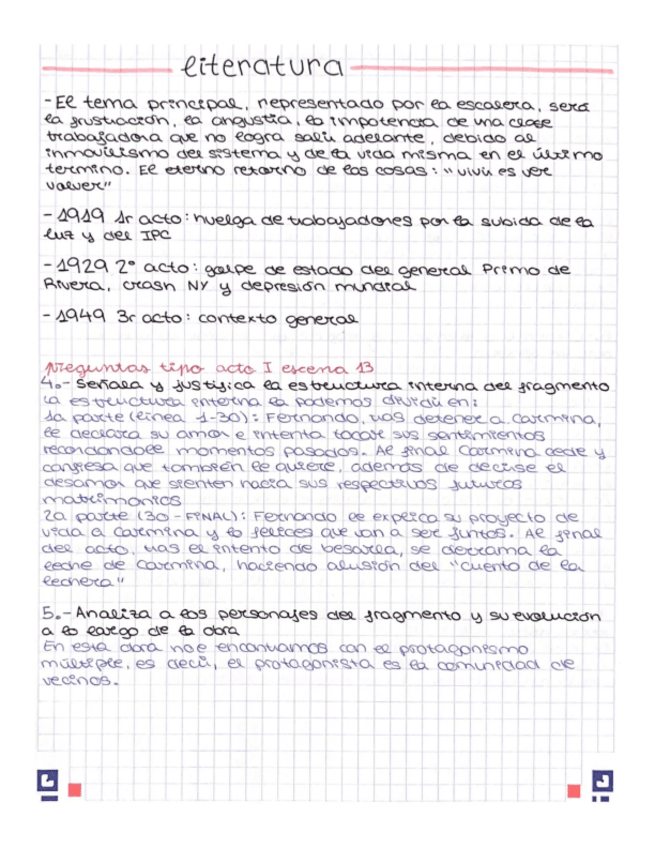 literatura
-El tema principal, representado por la escalera, será
la frustración, la angustia, la impotencia de una clase
trabajadora que no logra salir adelante, debido al
inmovilismo del sistema y de la vida misma en el último
termino. El eterno retorno de las cosas: "vivir es ver
volver"
- 1919 1r acto: huelga de trabajadores por la subida de la
luz y del IPC
- 1929 2º acto: golpe de estado del general Primo de
Rivera, crash NY y depresión mundial
- 1949 3r acto: contexto general
Preguntas tipo acto I escena 13
4.- Señala y justifica la estructura interna del fragmento
La estructura interna la podemos dividir en:
1a parte (línea 1-30): Fernando, tras detener a Carmina,
le declara su amor e intenta tocar sus sentimientos
recordandole momentos pasados. Al final Carmina cede y
confiesa que también le quiere, además de decirse el
desamor que sienten hacia sus respectivos futuros
matrimonios
2a parte (30-FINAL): Fernando le explica su proyecto de
vida a Carmina y lo felices que van a ser juntos. Al final
del acto, tras el intento de besarla, se derrama la
leche de Carmina, haciendo alusión del "cuento de la
lechera"
5.- Analiza a los personajes del fragmento y su evolución
a lo largo de la obra
En esta obra nos encontramos con el protagonismo
múltiple, es decir, el protagonista es la comunidad de
vecinos.